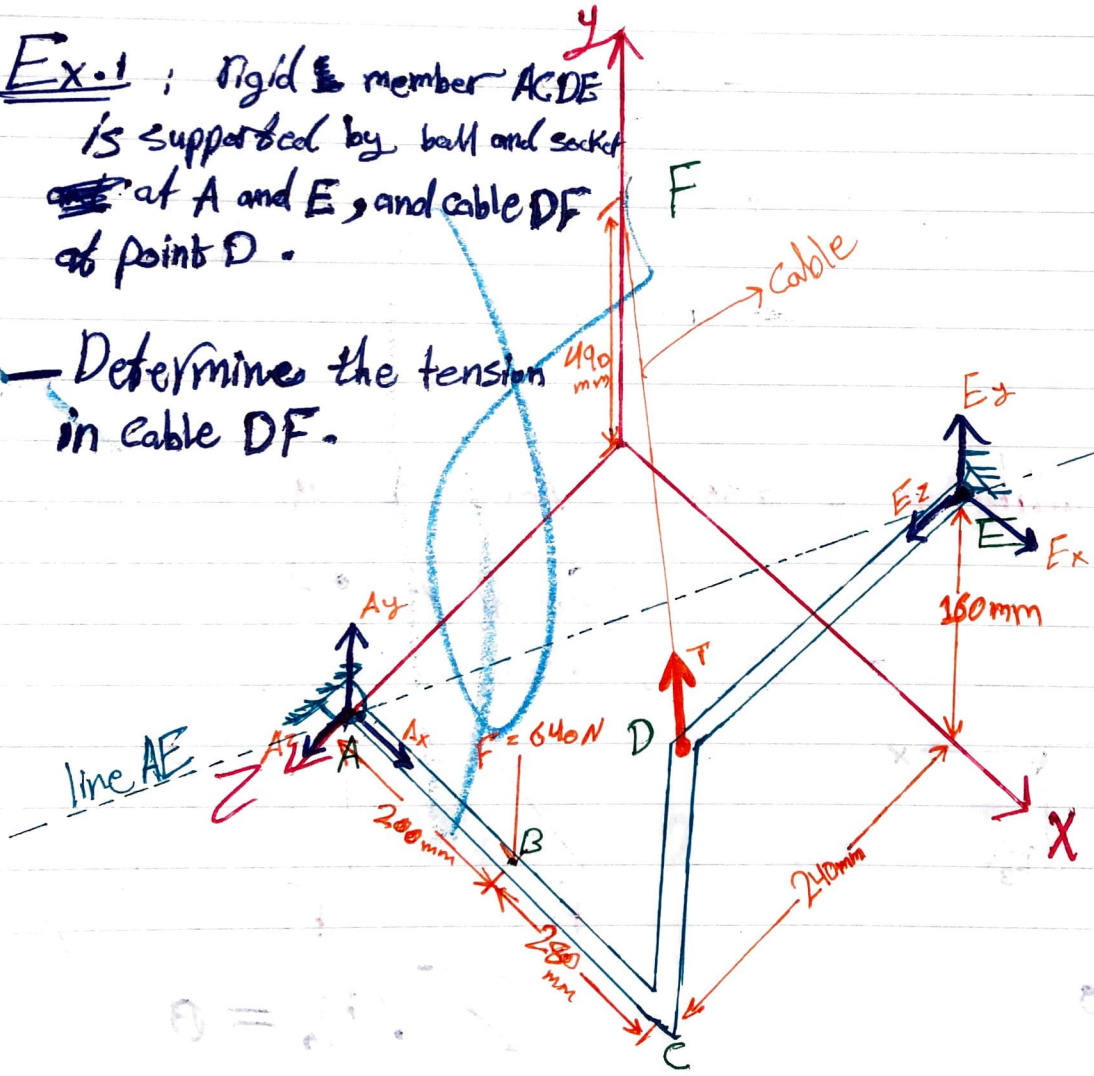 Ex.1 : rigid member ACDE
is supported by ball and socket
at A and E, and cable DF
at point D.
— Determine the tension
in cable DF.
y
F
cable
490
mm
Ey
Ez
E
Ex
160mm
Ay
T
F = 640N
D
Ax
A
line AE
Z
X
200mm
B
240mm
280
mm
C